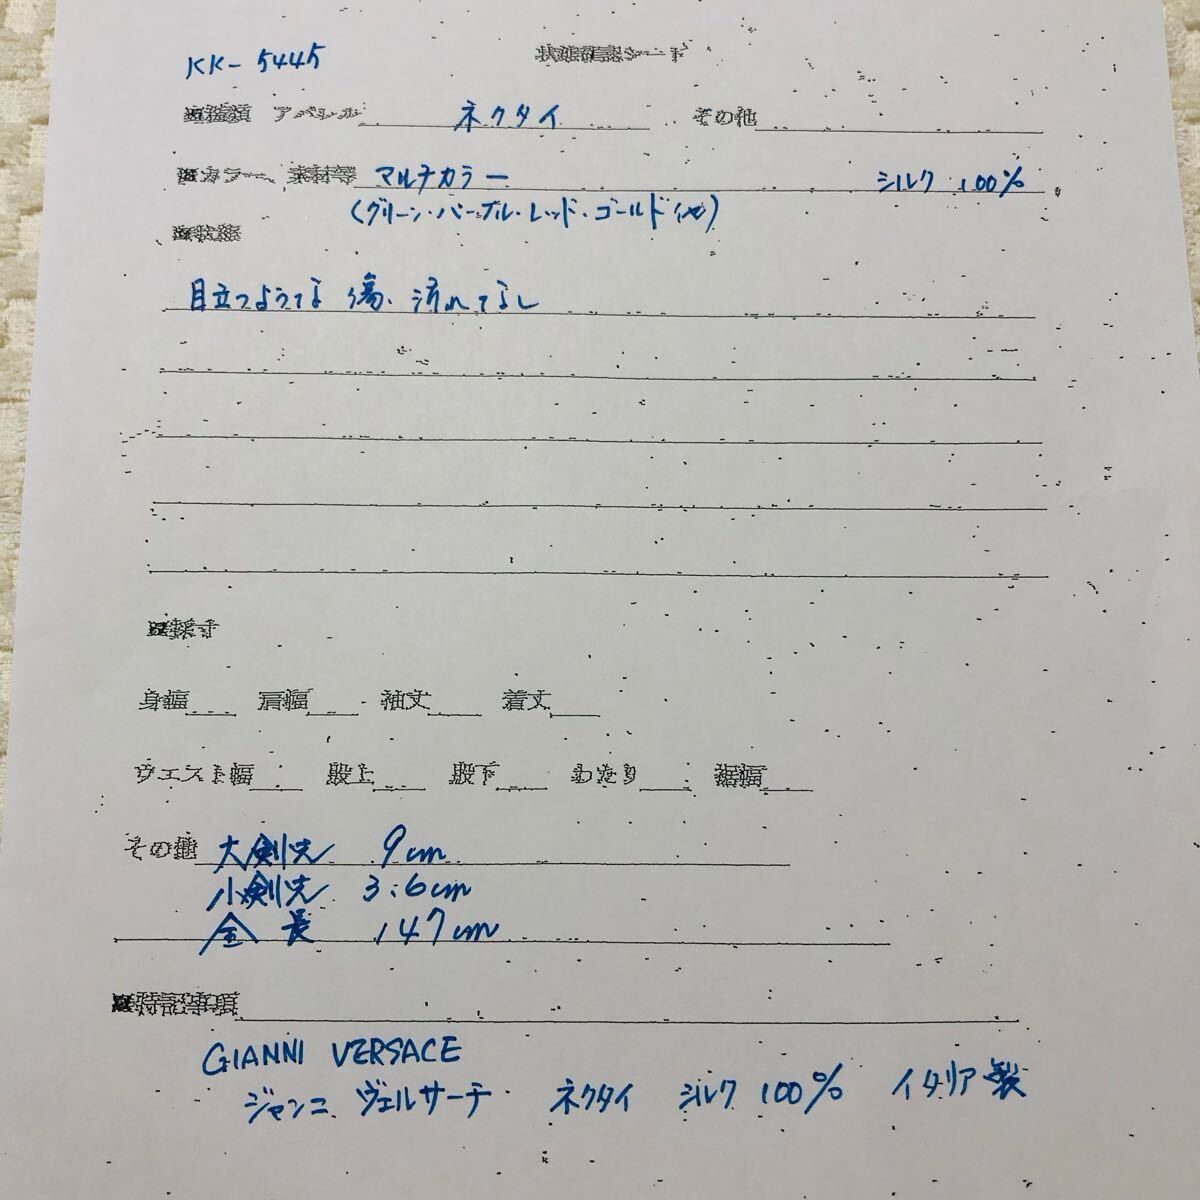 KK-5445
状態確認シート
■種類 アパレル ネクタイ その他
■カラー、素材等 マルチカラー シルク 100%
(グリーン・パープル・レッド・ゴールド他)
■状態
目立つような傷、汚れてなし
■採寸
身幅 肩幅 袖丈 着丈
ウエスト幅 股上 股下 わたり 裾幅
その他 大剣先 9cm
小剣先 3.6cm
全長 147cm
■特記事項
GIANNI VERSACE
ジャンニ ヴェルサーチ ネクタイ シルク 100% イタリア製